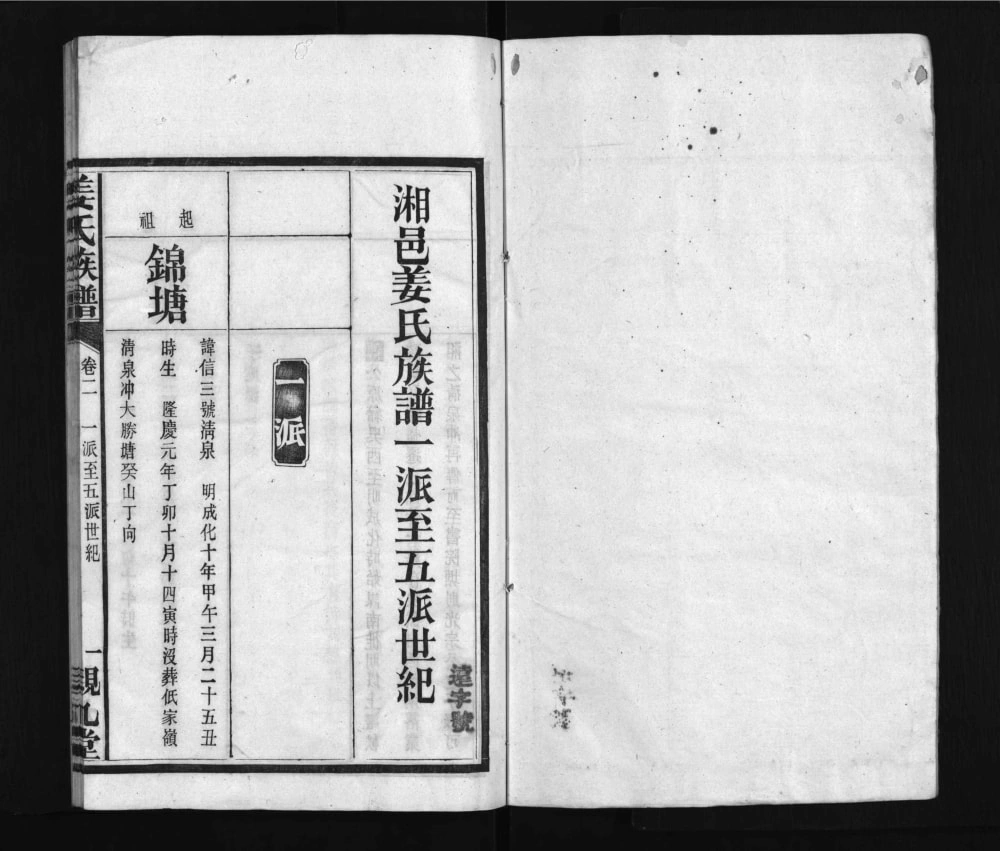 湘邑姜氏族譜一派至五派世紀
遠字號
一派
起祖
錦塘
諱信三號淸泉　明成化十年甲午三月二十五丑
時生　隆慶元年丁卯十月十四寅時沒葬低家嶺
淸泉冲大勝塘癸山丁向
姜氏族譜
卷二　一派至五派世紀
一